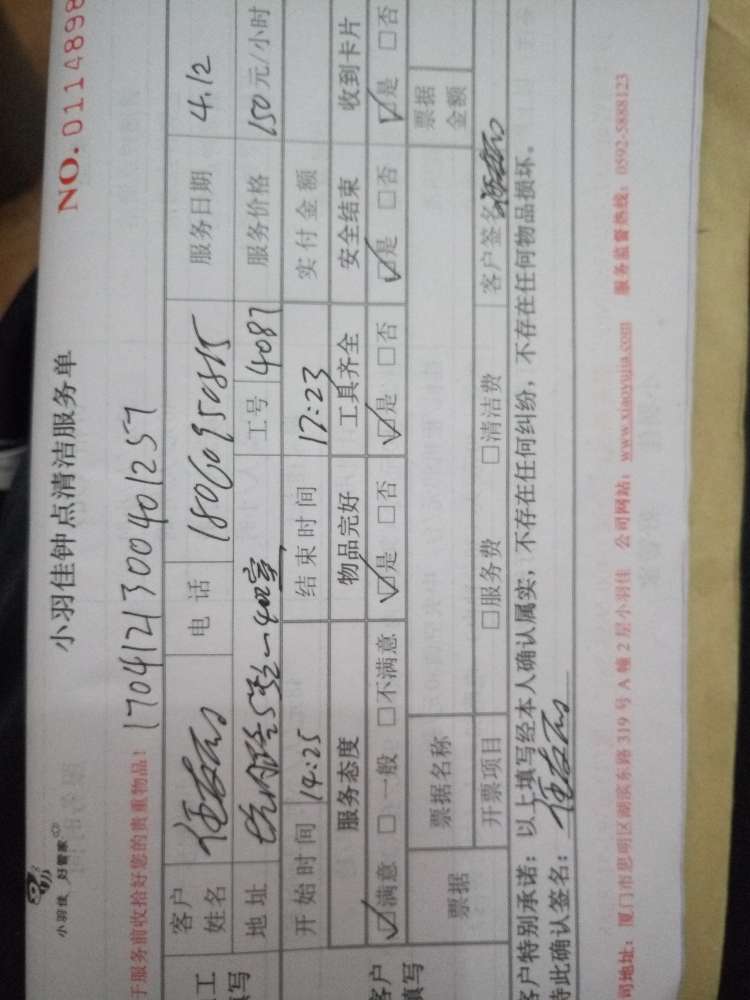 小羽佳 好管家
小羽佳钟点清洁服务单
NO. 0114898
于服务前收拾好您的贵重物品! 1704121300401257
工 客户姓名 电话 服务日期 4.12
填写 地址 工号 4087 服务价格 150元/小时
开始时间 14:25 结束时间 17:23 实付金额
客户 服务态度 物品完好 工具齐全 安全结束 收到卡片
填写 ☑满意 □一般 □不满意 ☑是 □否 ☑是 □否 ☑是 □否 ☑是 □否
票据 票据名称 票据金额
开票项目 □服务费 □清洁费 客户签名
客户特别承诺: 以上填写经本人确认属实, 不存在任何纠纷, 不存在任何物品损坏。
特此确认签名:
司地址: 厦门市思明区湖滨东路319号A幢2层小羽佳 公司网站: www.xiaoyujia.com 服务监督热线: 0592-5888123